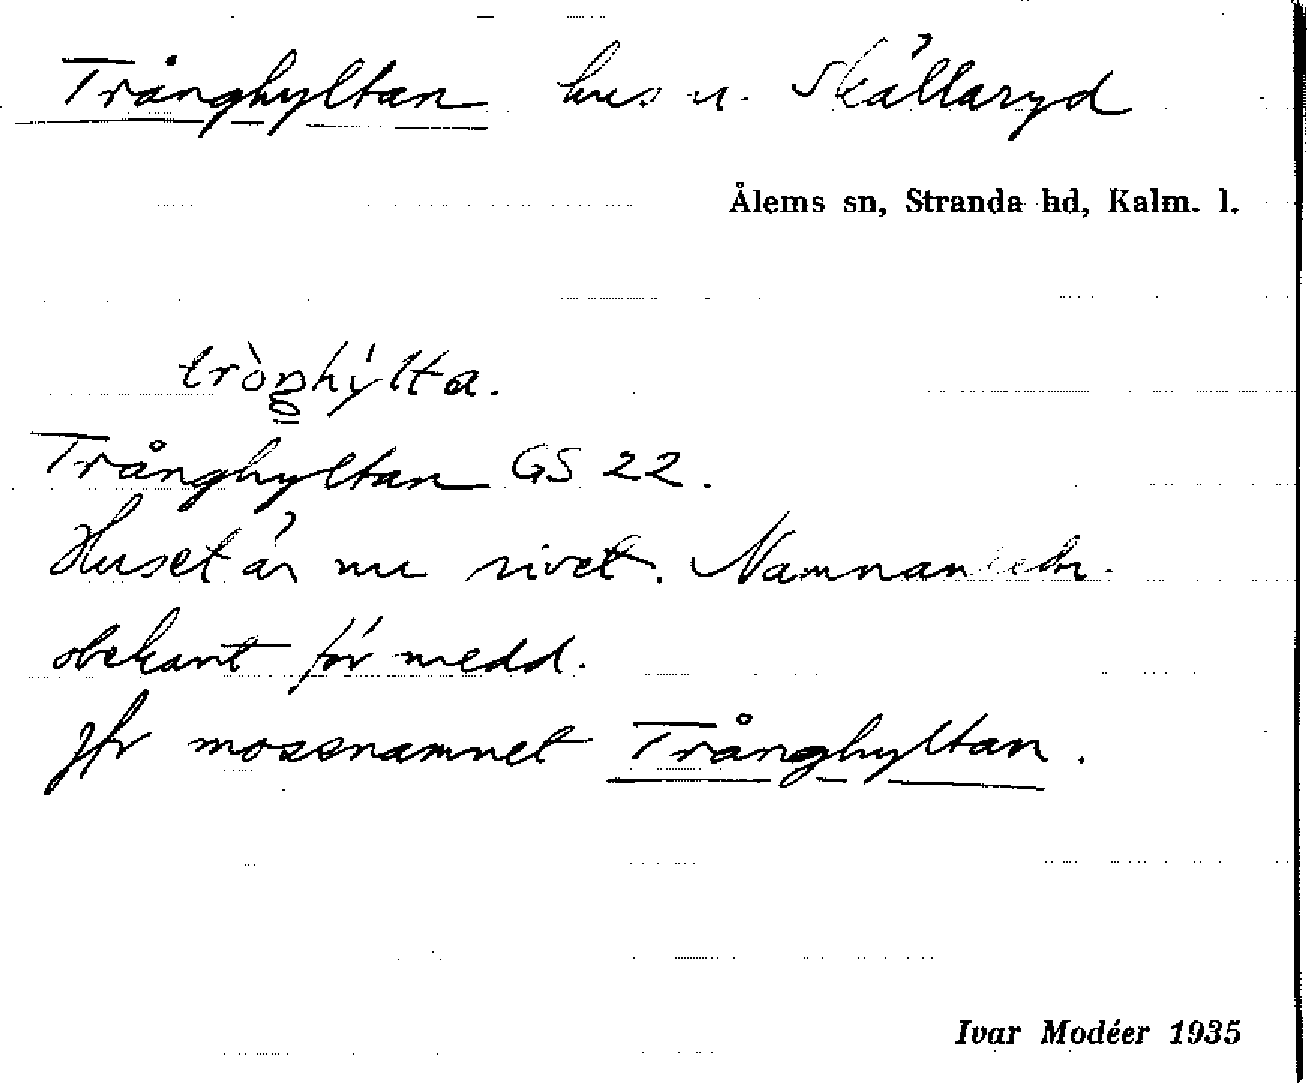 Trånghyltan hus u. Skällaryd
Ålems sn, Stranda hd, Kalm. l.
tròŋhýlta.
Trånghyltan GS 22.
Huset är nu rivet. Namnanledn.
obekant för medd.
Jfr mossnamnet Trånghyltan.
Ivar Modéer 1935